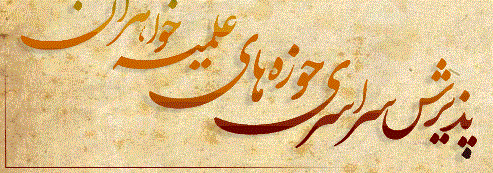 پذیرش سراسری حوزه های علمیه خواهران